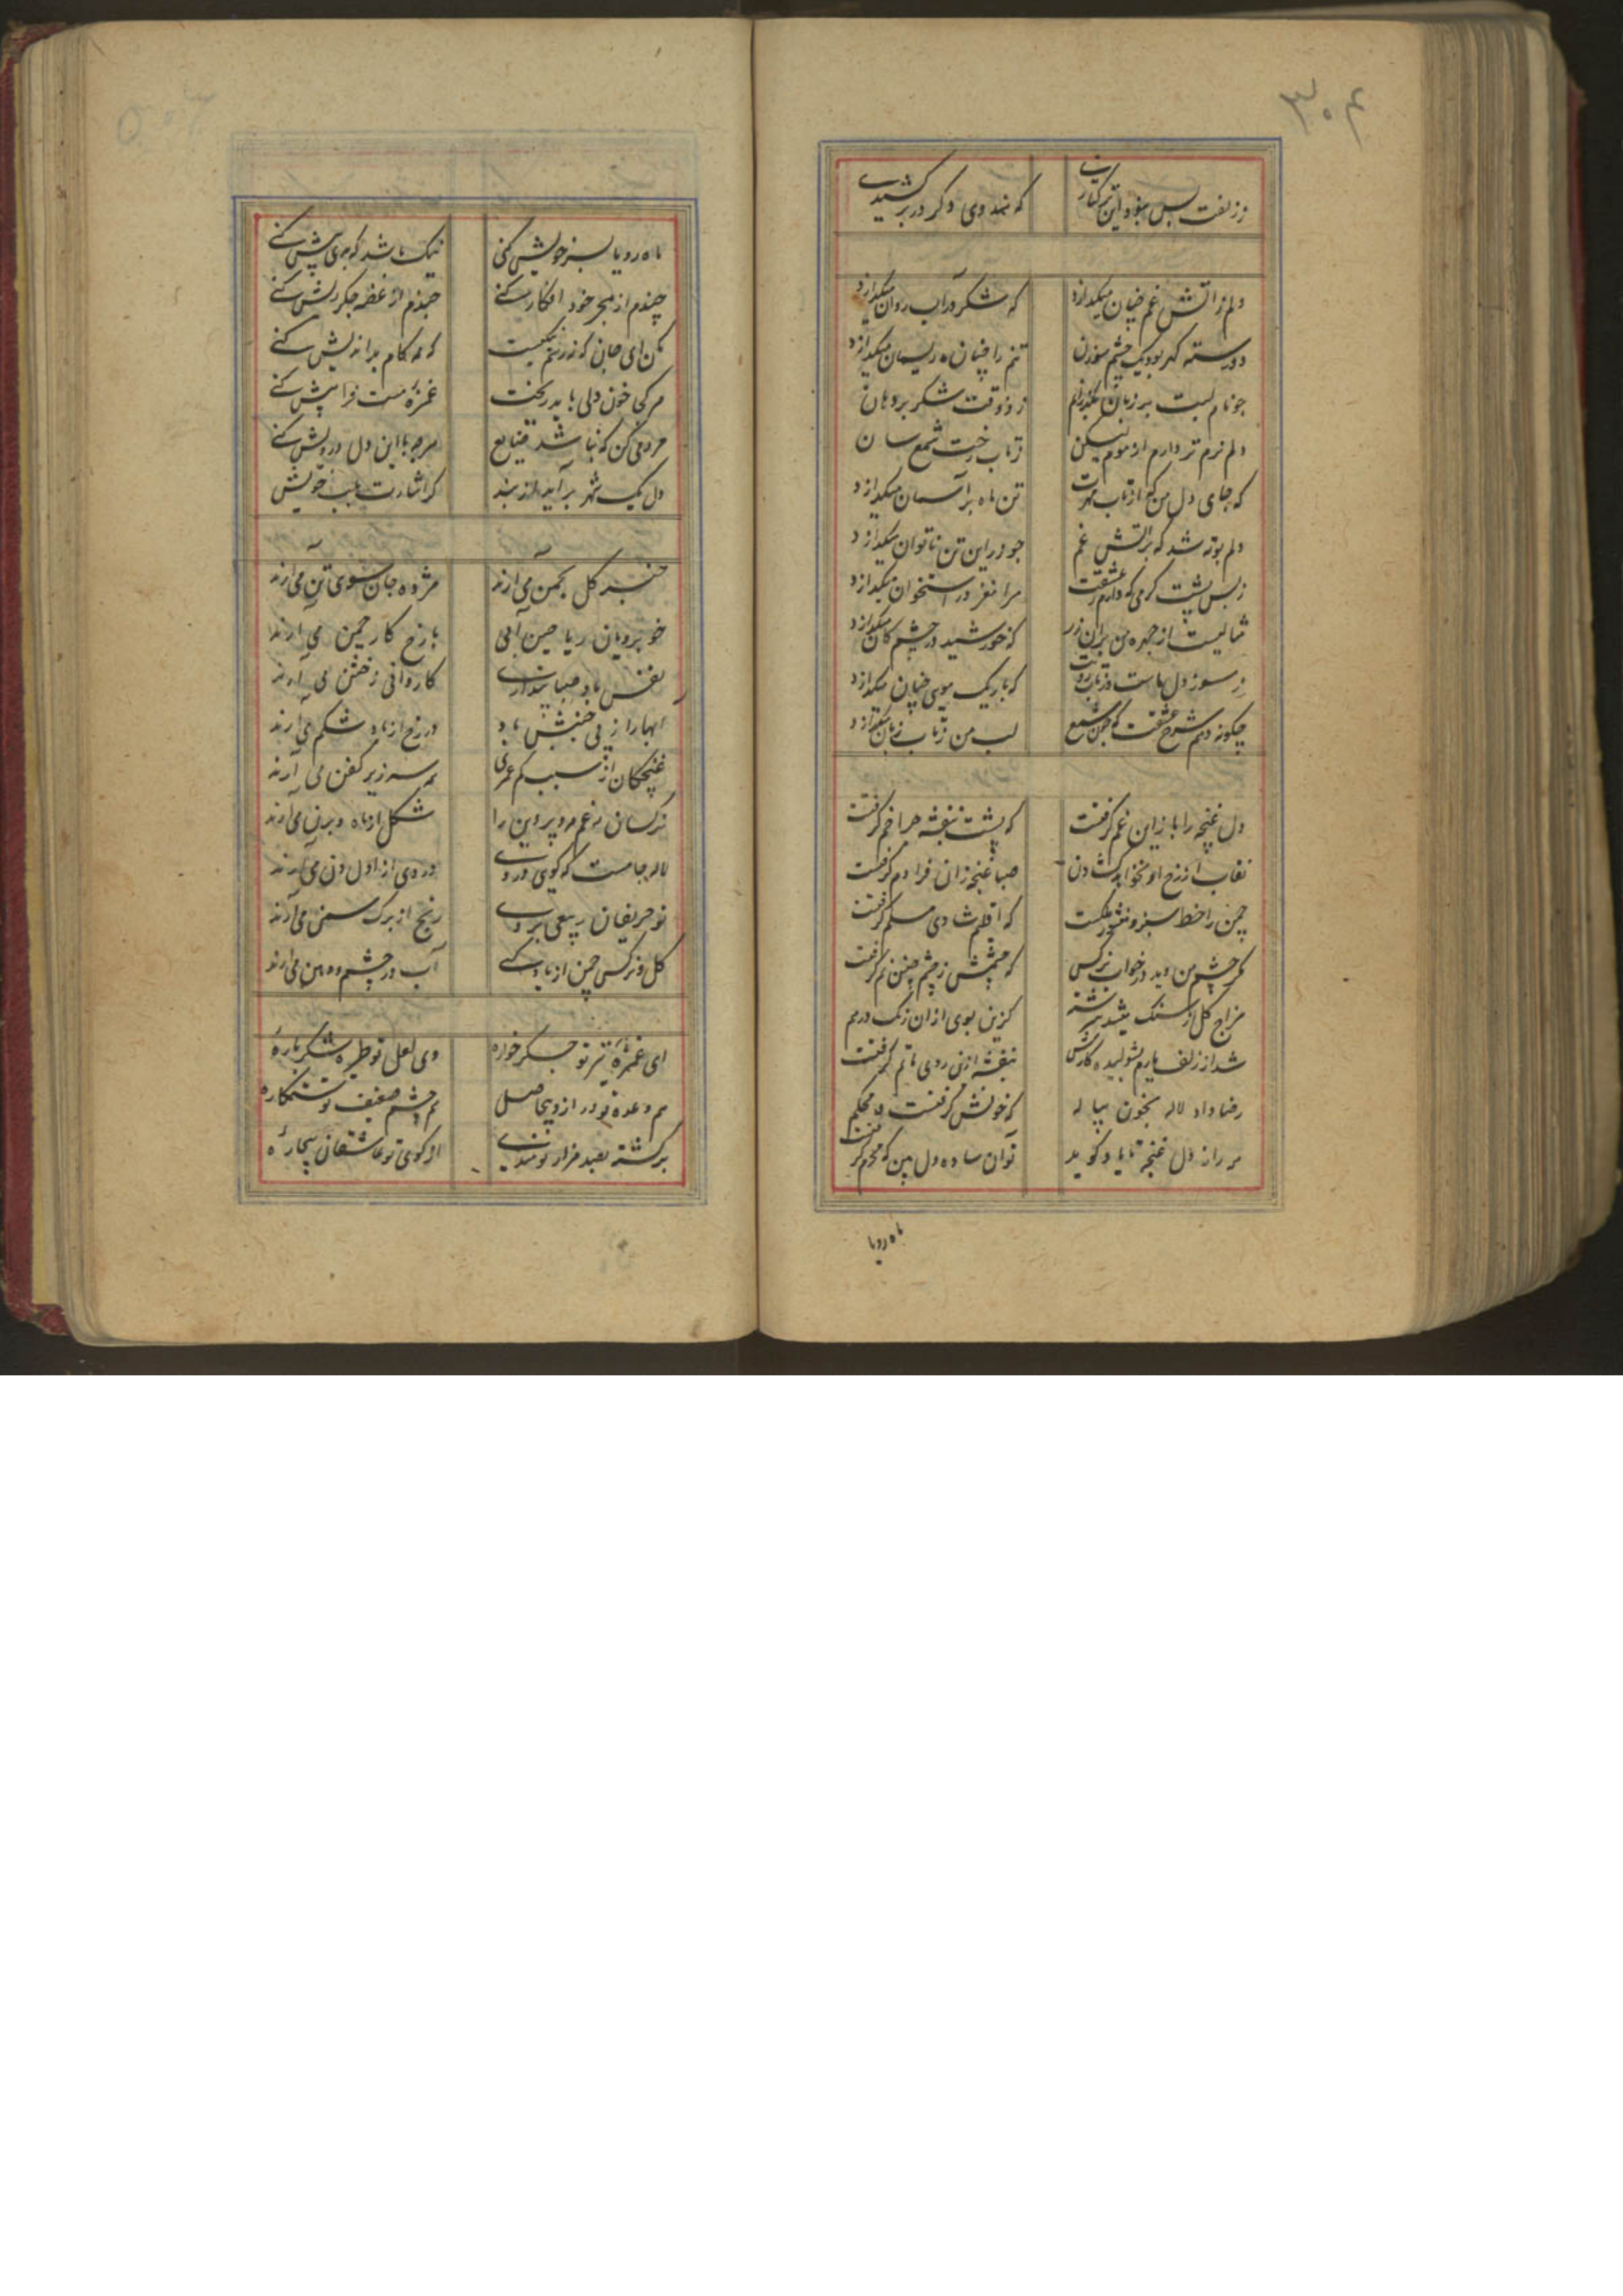 ۳۰۴
ز زلفت بس نبود این بر کنارت که هندوی دگر در بر کشیدی
دلم ز آتش غم چنان میکدازد که شکر در آب روان میکدازد
دو رسته کهر بود یک چشم سوزن تنم را چنان ریسمان میکدازد
چو نام لبت بر زبان بکذرانم ز ذوقت شکر بر دهان
دلم نرم تر دارم از موم لیکن ز تاب رخت شمع سان
که جای دل من که از تاب مهرت تن ماه بر آسمان میکدازد
دلم بوته شد که بر آتش غم چو زر این تن ناتوان میکدازد
ز بس کرمی که دارم ز عشقت مرا مغز در استخوان میکدازد
مثالیست از چهره من بران در که خورشید در چشم کان میکدازد
ز سوز دل ماست در تاب رویت که باریک موی چنان میکدازد
چکونه دهم شرح عشقت که چون شمع لب من ز تاب زبان میکدازد
دل غنچه را باز این غم کرفت که پشت بنفشه چرا خم کرفت
نقاب از رخ او نخواهد کشادن صبا غنچه زان فرا دم کرفت
چمن را خط سبز و منشور ملکست که اقلیم شادی مسلم کرفت
مکر چشم من دید در خواب نرکس که چشمش ز چشم چنین نم کرفت
مزاج کل از سنک کزین بوی ازان رنک درهم
شد از زلف یارم شولیده کارش بنفشه ازین روی ماتم کرفت
رضا داد لاله بخون پیاله که خونش کرفتست و محکم
هر راز دل غنچه تا باد کوید توان ساده دل بین که محرم کرفت
ماه رویا
ماه رویا بسر خویش کنی نیک باشد که بدی پیش کنی
چندم از هجر خود افکار کنی چندم از غصه جکر ریش کنی
مکن ای جان که نه رسم نیکیست که همه کام بداندیش کنی
هر کجا خون دلی باید ریخت غمزه مست فرا پیش کنی
مردمی کن که نباشد ضایع هرچه با این دل درویش کنی
دل یک شهر بر آید از بند کر اشارت بلب خویش
خبر کل بچمن می آرند مژده جان سوی تن می آرند
خوبرویان ریاحین آبی با رخ کار چمن می آرند
نفس باد صبا پنداری کاروانی ز ختن می آرند
ابها را ز پی جنبش باد در زخ از باد شکم می آرند
غنچکان از سبب کم عمری هم سر زیر کفن می آرند
نرکسان زغم مه و پروین را شکل از ماه و پرن می آرند
لاله جامست که کوی در وی دردی از اول دن می آرند
نو حریفان ربیعی بر وی رنج از برک سمن می آرند
کل و نرکس چمن از باد کی آب در چشم و دهن می آرند
ای غمزه تیز تو جکر خواره وی لعل تو طیره شکر پاره
هم وعده تو دراز و بیحاصل هم چشم ضعیف تو ستمکاره
برکشته بصد هزار نومیدی از کوی تو عاشقان بیچاره